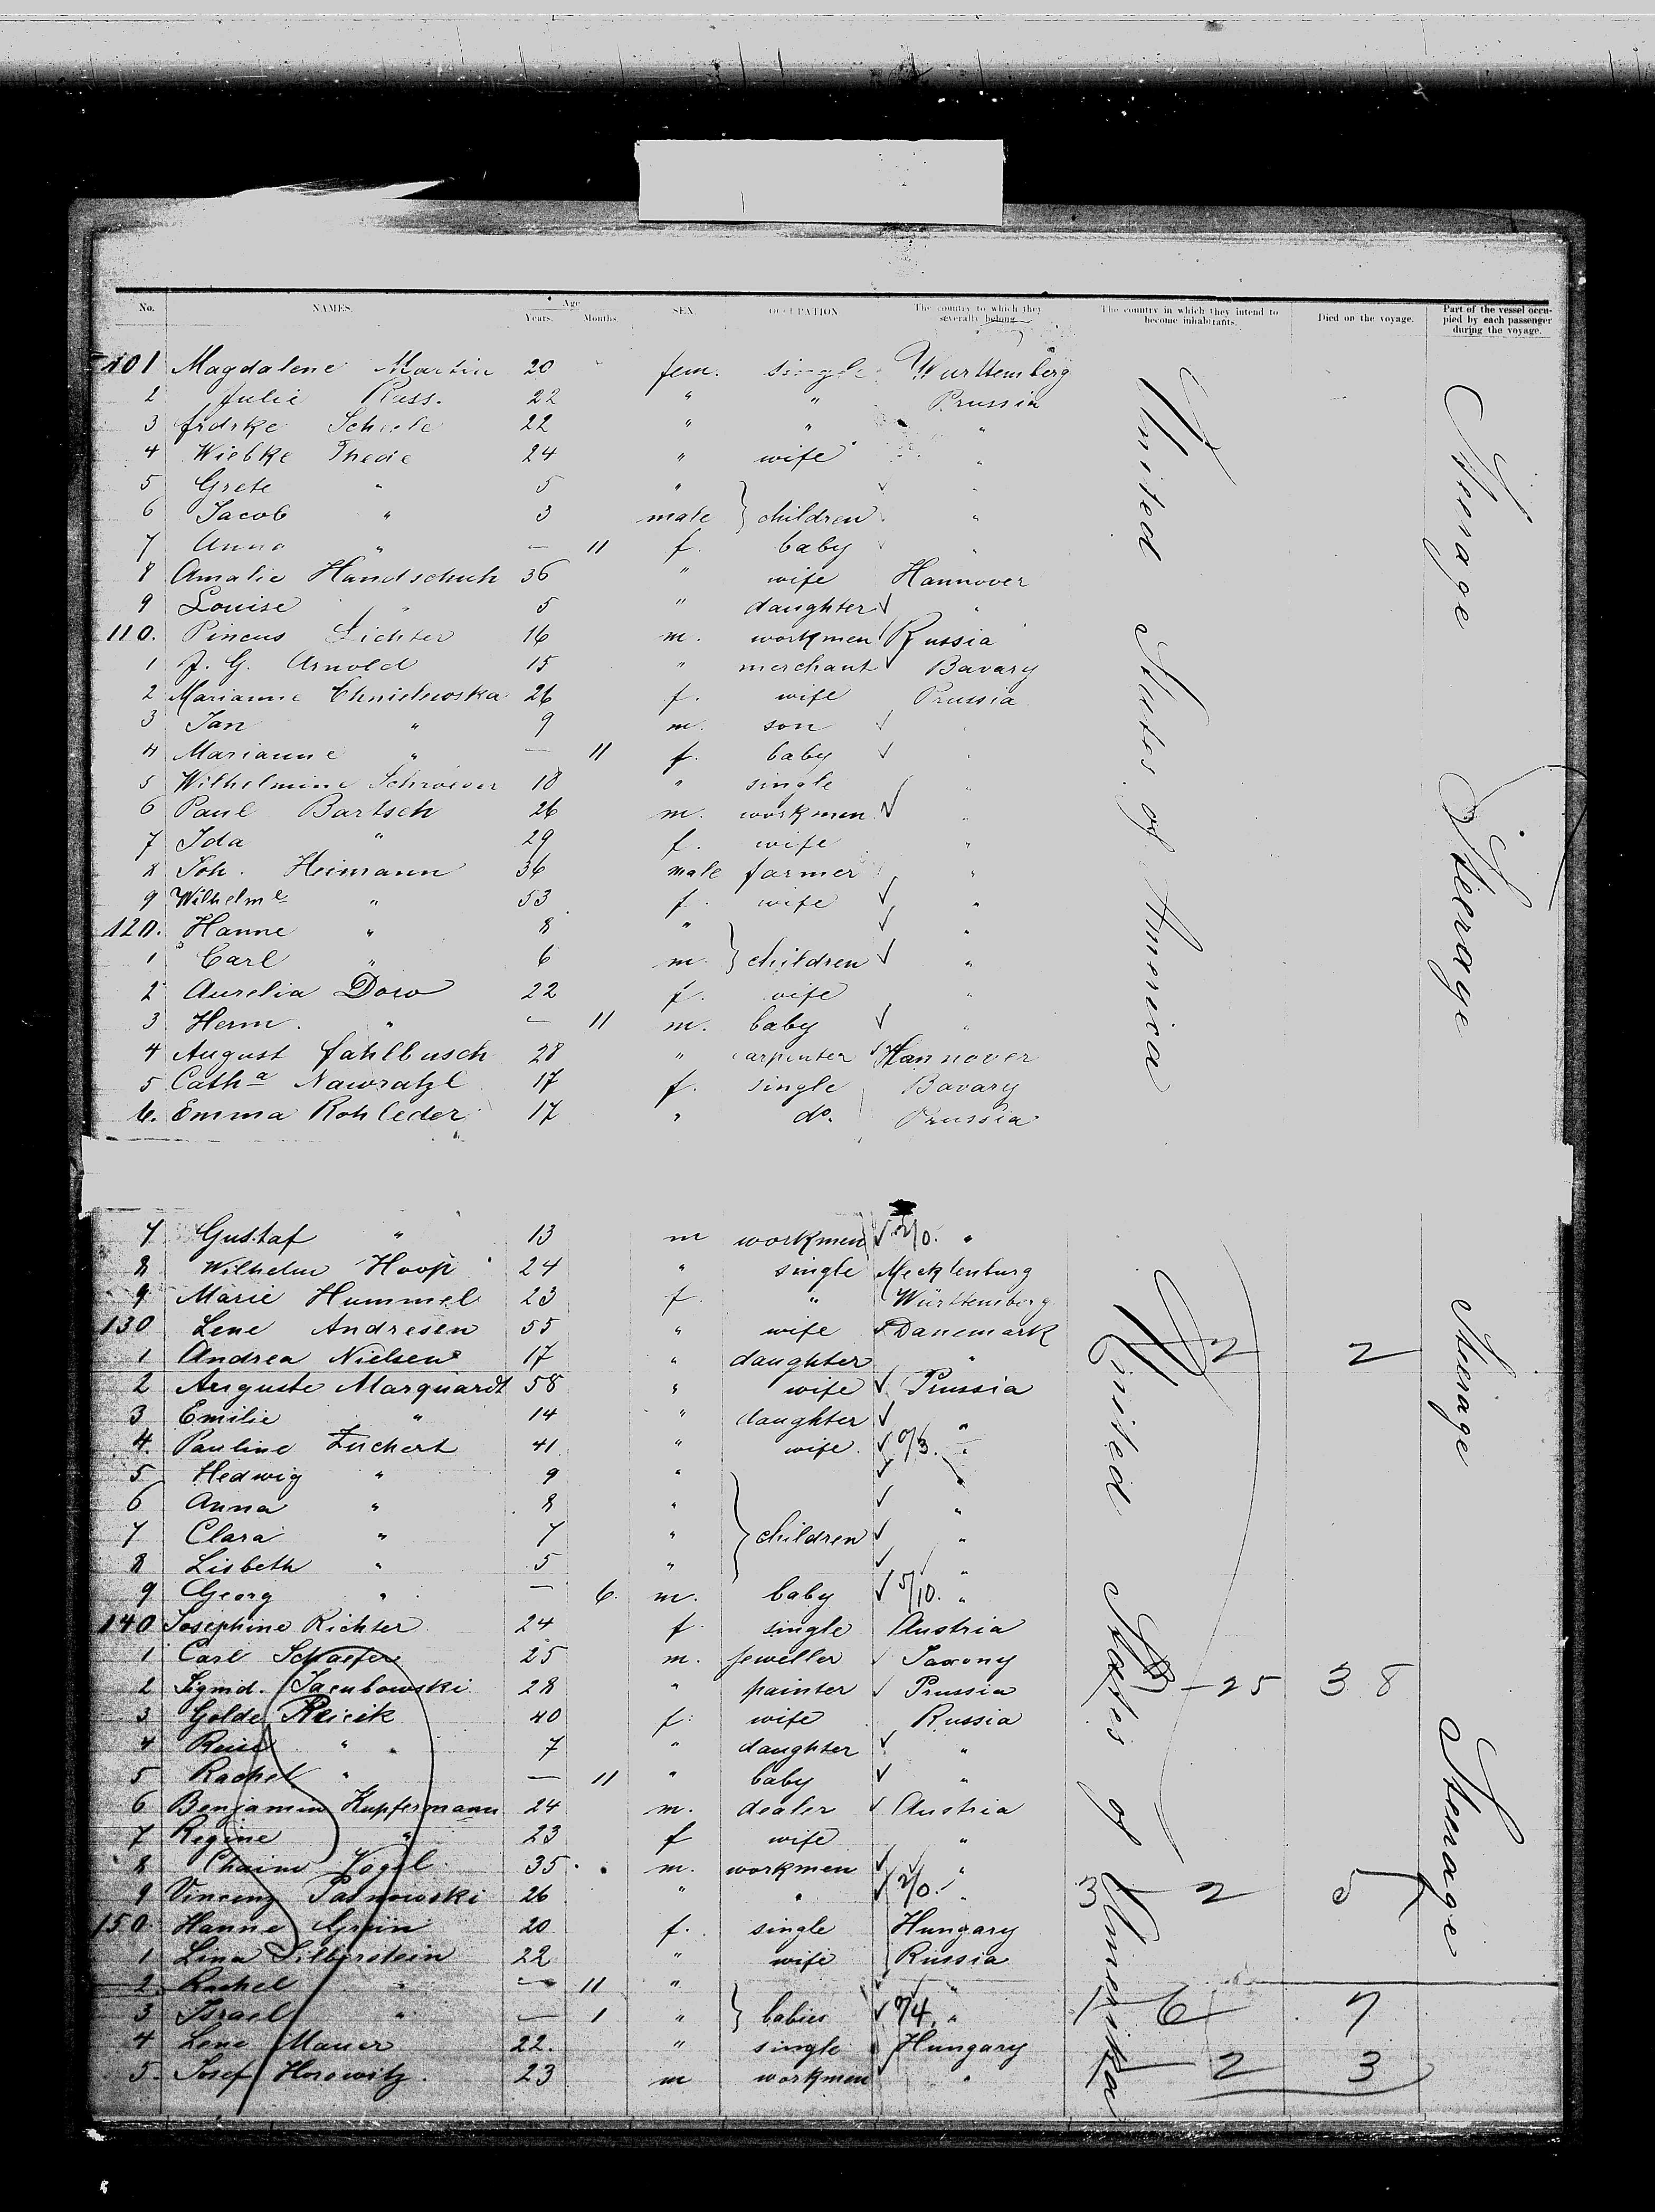 No. NAMES. Age Years. Months. SEX. OCCUPATION The country to which they severally belong The country in which they intend to become inhabitants. Died on the voyage. Part of the vessel occupied by each passenger during the voyage.
101 Magdalene Martin 20 fem. single Württemberg
2 Julie 22 " " Prussia
3 frdrke Scheele 22 " " "
4 Wiebke Thede 24 " wife "
5 Grete " 5 " "
6 Jacob " 3 male } children "
7 Anna " — 11 f. baby "
8 Amalie Handschuh 36 " wife Hannover
9 Louise " 5 " daughter "
110. Pincus Lichter 16 m. workmen Russia
1 J. G. Arnold 15 " merchant Bavary
2 Marianne 26 f. wife Prussia
3 Jan " 9 m. son "
4 Marianne " — 11 f. baby "
5 Wilhelmine 18 " single "
6 Paul Bartsch 26 m. workmen "
7 Ida " 29 f. wife "
8 Joh. Heimann 36 male farmer "
9 Wilhelme " 53 f. wife "
120. Hanne " 8 " "
1 Carl " 6 m. } children "
2 Aurelia Dorow 22 f. wife "
3 Herm. " — 11 m. baby "
4 August fahlbusch 28 " carpenter Hannover
5 Catha Nawratzl 17 f. single Bavary
6. Emma Rohleder 17 " do. Prussia
United States of America
Steerage
Steerage
7 Gustaf " 13 m workmen 2/0. "
8 Wilhelm Hoop 24 " single Mecklenburg
9 Marie Hummel 23 f. " Württemberg
130 Lene Andresen 55 " wife Danemark
1 Andrea Nielsen 17 " daughter " 2 2
2 Auguste Marquardt 58 " wife Prussia
3 Emilie " 14 " daughter "
4. Pauline Zuchert 41 " wife. 0/3. "
5 Hedwig " 9 " "
6 Anna " 8 " "
7 Clara " 7 " } children "
8 Lisbeth " 5 " "
9 Georg " — 6. m. baby 5/10. "
140 Josephine Richter 24 f. single Austria
1 Carl Schaefer 25 m. jeweller Saxony
2 Sigmd. Jacubowski 28 " painter Prussia 25 38
3 Golde 40 f. wife Russia
4 " 7 " daughter "
5 Rachel " — 11 " baby "
6 Benjamin Kupfermann 24 m. dealer Austria
7 Regine " 23 f wife "
8 Chaim Vogel 35 m. workmen "
9 Vincenz 26 " " 2/0. " 3 2 5
150. Hanne Grün 20 f. single Hungary
1 Lina Silberstein 22 " wife Russia
2. Rachel " — 11 " "
3 Israel " — 1 " } babies 0/4. " 1 6 7
4 Lene Mauer 22. " single Hungary
5. Josef Horowitz. 23 m workmen " 2 3
United States of Amerika
Steerage
Steerage